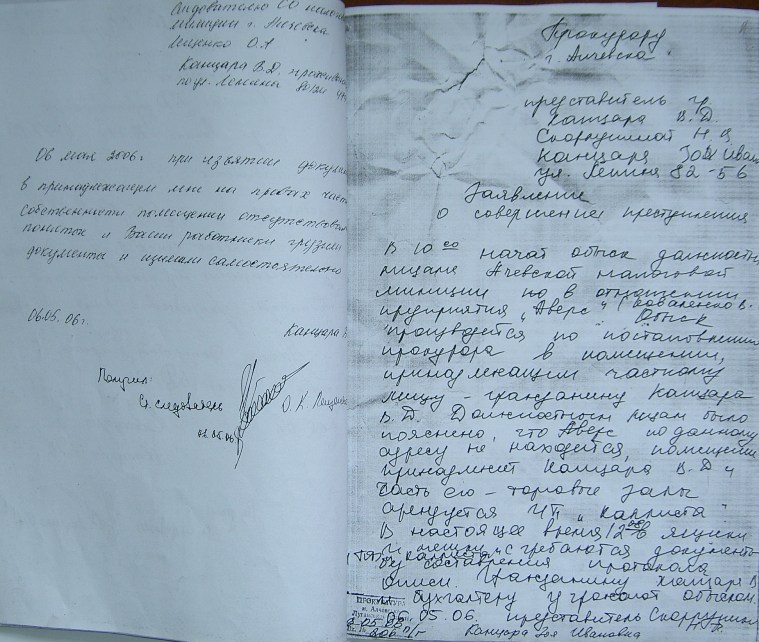 Следователю СО налого
милиции г. Алчевска
Лещенко О.А
Канцара В.Д. прожива
по ул. Ленина
06 мая 2006г при изъятии докум
в принадлежащем мне на правах част
собственности помещении отсутствовали
понятые и Ваши работники грузили
документы и изымали самостоятельно
06.05.06г.
Канцара
Получил:
Ст. следователь О.К. Лещен
Прокурору
г. Алчевска
представитель гр
Канцара В.Д.
Скоррупшат Н.
Канцара Зоя Иван
ул. Ленина 82-56
Заявление
о совершении преступления
В 10 00 начат обыск должностн
лицами Ачевской налоговой
милиции но в отношении
предприятия „Аверс" (Коваленко В.
Обыск
производится по постановлению
прокурора в помещении,
принадлежащим частному
лицу - гражданину Канцара
В.Д. Должностным лицам было
пояснено, что Аверс по данному
адресу не находится, помещение
принадлежит Канцара В.Д и
часть его - торговые залы
арендуется ЧП „Карриста"
В настоящее время 12 ящики
и мешки сгребаются документы
ЧП „Карриста"
без составления протокола
описи. Гражданину Канцара В
и бухгалтеру угрожают обыском.
ПРОКУРАТУРА
м. Алчев
Луган
06.05.06. представитель Скоррупшат
Канцара Зоя Ивановна